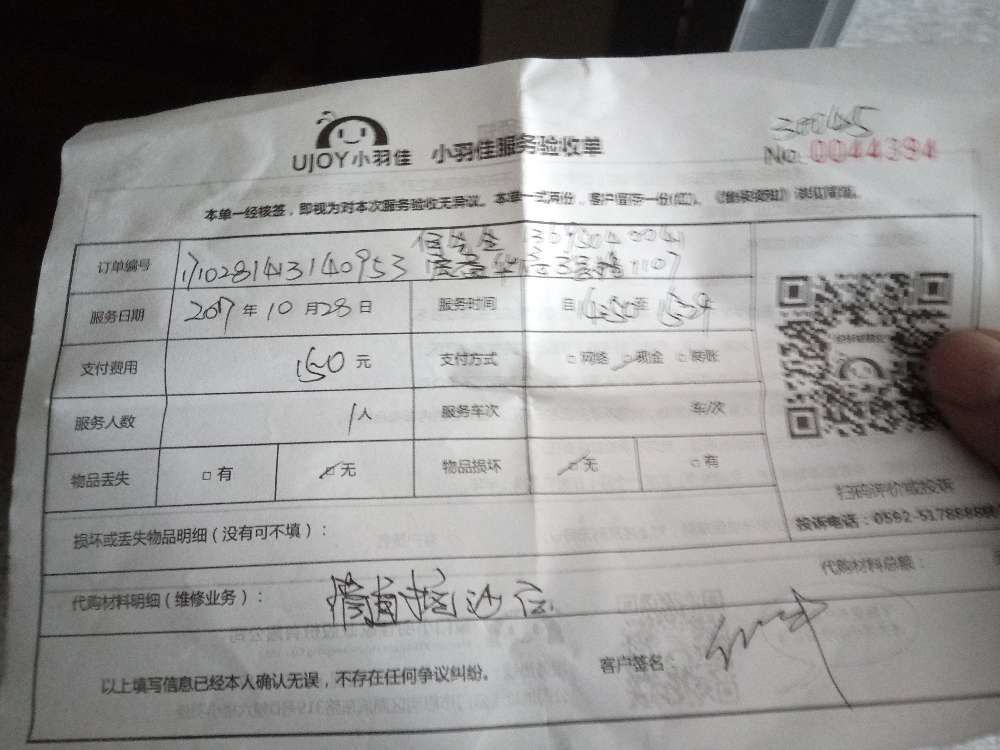 300445
UJOY小羽佳 小羽佳服务验收单 No. 0044394
本单一经核签，即视为对本次服务验收无异议。本单一式两份，客户留存一份(红)。
订单编号 171028143140953
服务日期 2017年10月28日 服务时间 自14:50至15:24
支付费用 150元 支付方式 □网络 □现金 □转账
服务人数 1人 服务车次 车/次
物品丢失 □有 □无 物品损坏 □无 □有
扫码评价或投诉
损坏或丢失物品明细（没有可不填）： 投诉电话：0592-5178688
代购材料明细（维修业务）： 代购材料总额：
以上填写信息已经本人确认无误，不存在任何争议纠纷。 客户签名：